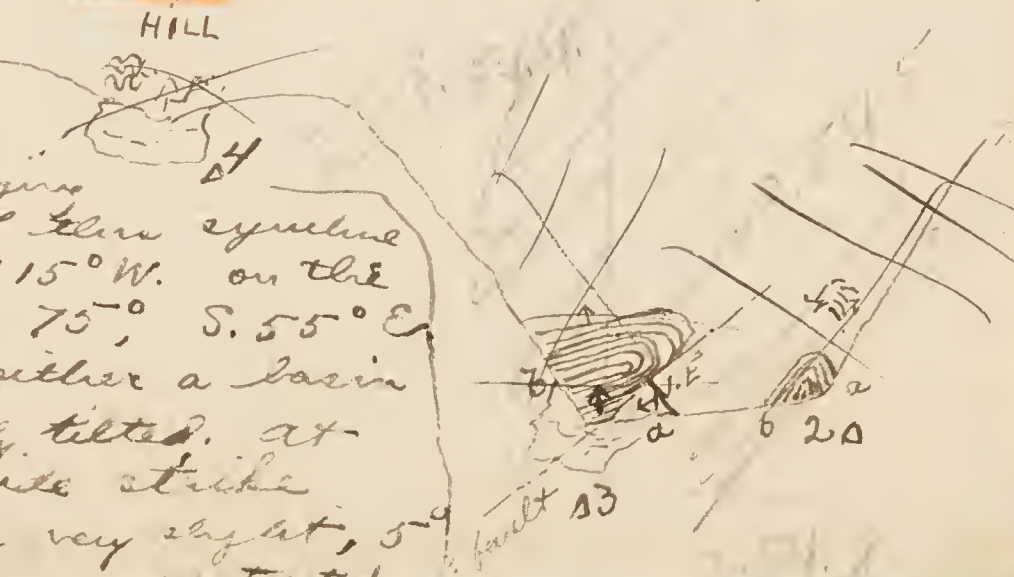 HILL
Δ4
this syncline
15° W. on the
75°, S. 55° E
either a basin
tilted. at
strike
very slight, 5°
b
a
b 2Δ
a
Δ3
fault